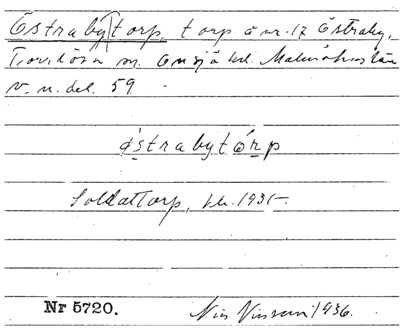 Östraby|torp, torp å nr. 17 Östraby,
sn. Onsjö hd. Malmöhus län
v. n. del. 59
östrabytórp
Soldattorp, bb. 1935.
Nr 5720.
Nils 1936.